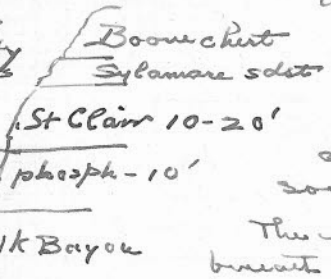 Boone chert
Sylamore sdst
St Clair 10-20'
phosph - 10'
lk Bayou
The